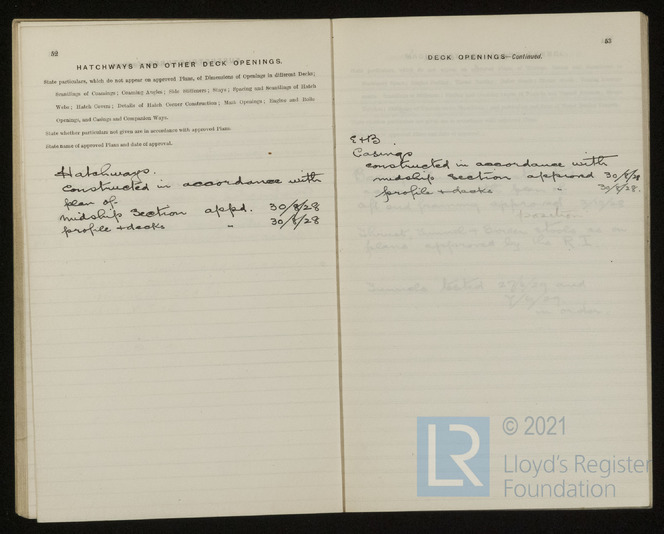 52
HATCHWAYS AND OTHER DECK OPENINGS.
State particulars, which do not appear on approved Plans, of Dimensions of Openings in different Decks;
Scantlings of Coamings; Coaming Angles; Side Stiffeners; Stays; Spacing and Scantlings of Hatch
Webs; Hatch Covers; Details of Hatch Corner Construction; Mast Openings; Engine and Boiler
Openings, and Casings and Companion Ways.
State whether particulars not given are in accordance with approved Plans.
State name of approved Plans and date of approval.
Hatchways.
Constructed in accordance with
plan of
midship section appd. 30/8/28
profile + decks " 30/8/28
53
DECK OPENINGS—Continued.
E+B
Casings
constructed in accordance with
midship section approved 30/8/28
profile + decks " 30/8/28.
LR
© 2021
Lloyd's Register
Foundation